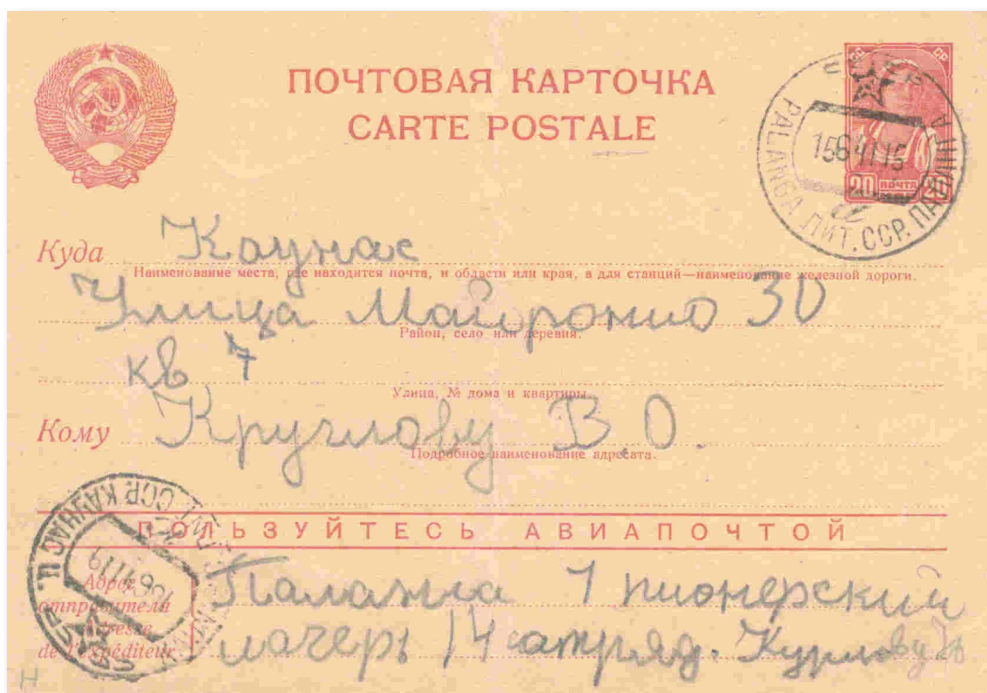 ПОЧТОВАЯ КАРТОЧКА
CARTE POSTALE
СССР
20 ПОЧТА 20
PALANGA ЛИТ. ССР. ПАЛАНГА
15 6 41 15
Куда Каунас
Наименование места, где находится почта, и области или края, а для станций—наименование железной дороги.
Улица Майронио 30
Район, село или деревня.
кв 7
Улица, № дома и квартиры.
Кому В.О.
Подробное наименование адресата.
ПОЛЬЗУЙТЕСЬ АВИАПОЧТОЙ
ЛИТ. ССР КАУНАС Ц.
Адрес отправителя
Adresse de l'expéditeur
1 пионерский
14
Н